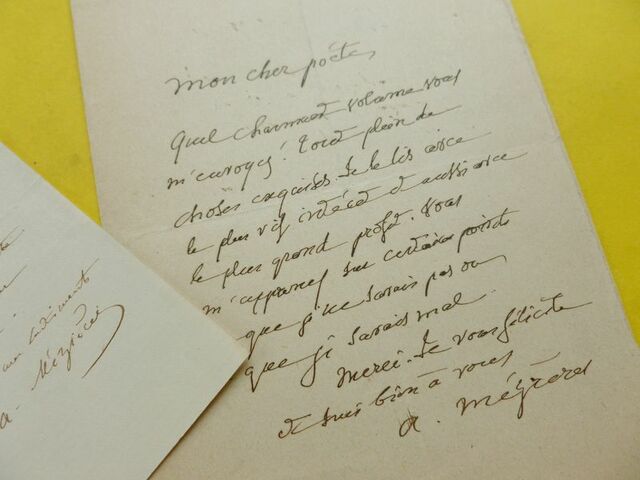 Mon cher poète,
Quel charmant volume vous
m'envoyez! Tout plein de
choses exquises. Je le lis avec
le plus vif intérêt et aussi avec
le plus grand profit. Vous
m'apprenez sur certains points
que je ne savais pas ou
que je savais mal.
Merci. Je vous félicite
et suis bien à vous
A. Mézières
sentiments
A. Mézières